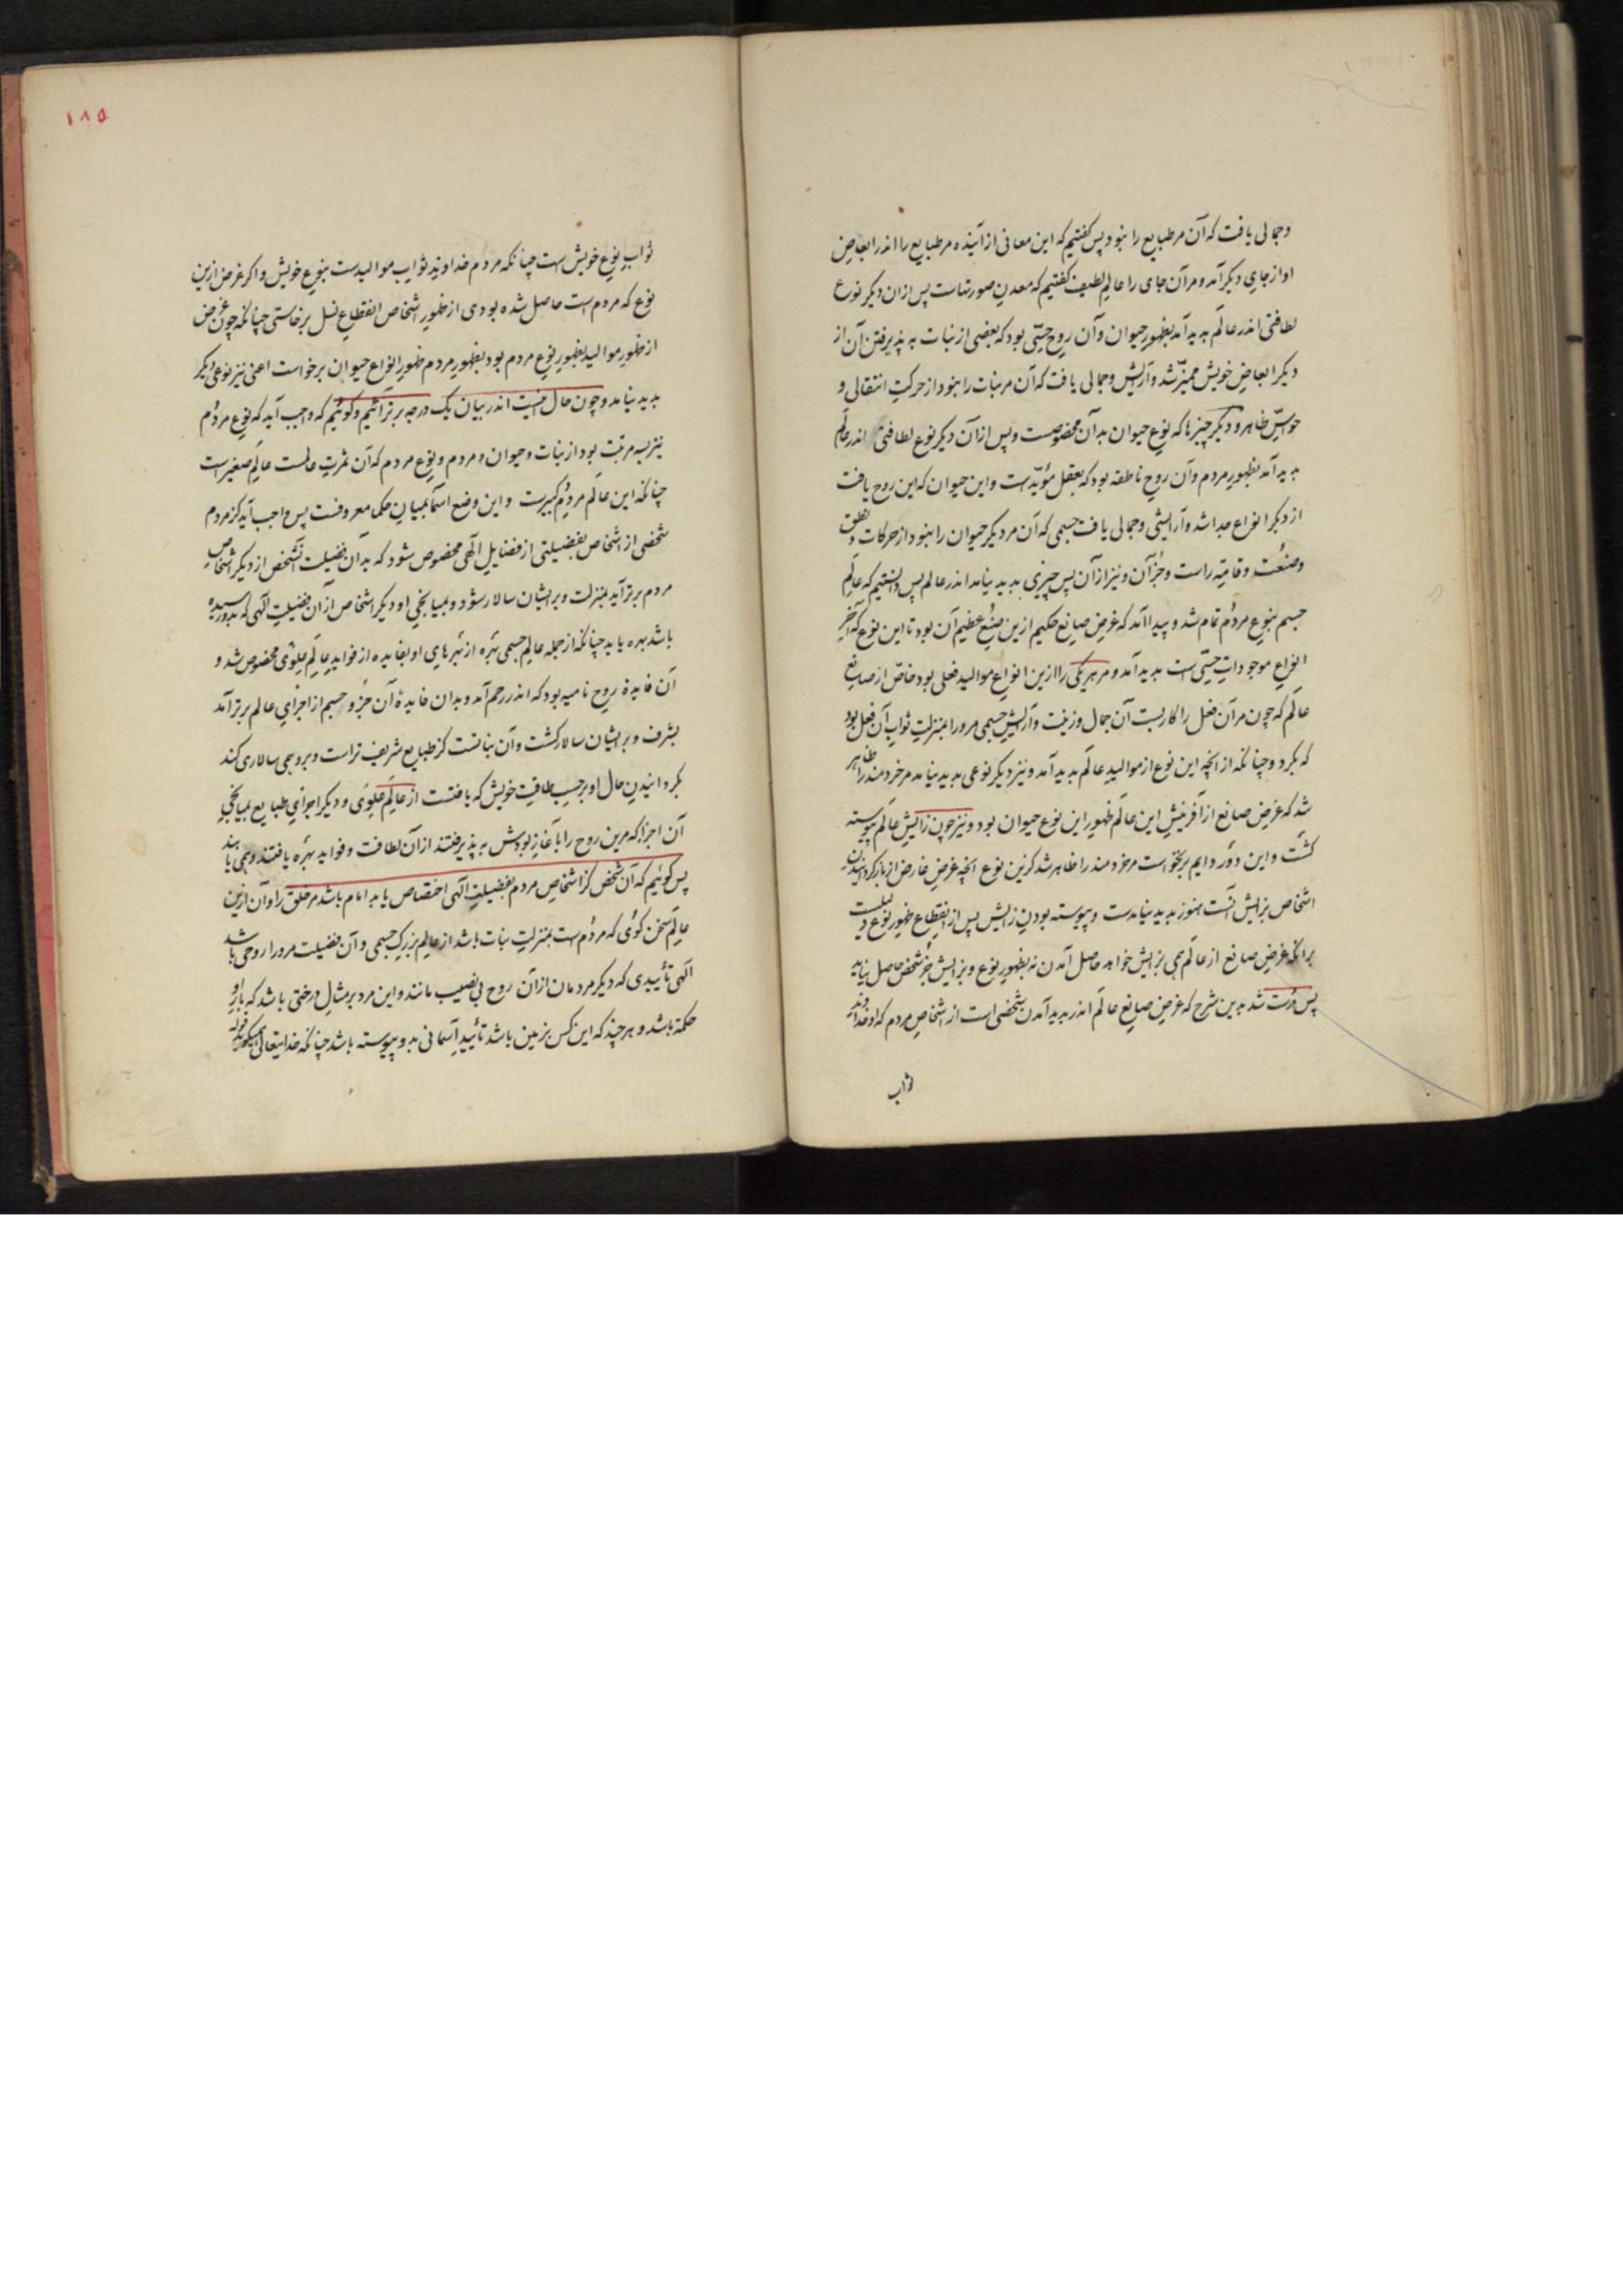 وجمالی یافت که آن مر طبایع را نبود پس گفتیم که این معانی از آینده مر طبایع را اندر ابعاض
او از جای دیگر آمد و مر آن جای را عالم لطیف گفتیم که معدن صورتهاست پس ازان دیگر نوع
لطافتی اندر عالم بدید آمد بظهور حیوان وآن روح حسّی بود که بعضی از نبات به پذیرفتن آن از
دیگر ابعاض خویش ممیّز شد وآرایش وجمالی یافت که آن مر نبات را نبود از حرکت انتقالی و
حواسّ ظاهر و دیگر چیزها که نوع حیوان بدآن مخصوصست وپس ازآن دیگر نوع لطافتی اندر عالم
بدید آمد بظهور مردم وآن روح ناطقه بود که بعقل مؤیّد است واین حیوان که این روح یافت
از دیگر انواع جدا شد وآرایشی وجمالی یافت جسمی که آن مر دیگر حیوان را نبود از حرکات نطق و
وصنعت وقامت راست وجز آن ونیز ازآن پس چیزی بدید نیامد اندر عالم پس دانستیم که عالم
جسم بنوع مردم تمام شد و پیدا آمد که غرض صانع حکیم ازین صنع عظیم آن بود تا این نوع که آخر
انواع موجودات حسّی است بدید آمد و مر هر یکی را ازین انواع موالید فعلی بود خاصّ از صانع
عالم که چون مر آن فعل را کار بست آن جمال وزینت وآرایش جسمی مرورا بمنزلت ثواب آن فعل بود
که بکرد وچنانکه ازانچه این نوع از موالید عالم بدید آمد ونیز دیگر نوعی بدید نیامد مر خردمند را ظاهر
شد که غرض صانع از آفرینش این عالم ظهور این نوع حیوان بود ونیز چون زایش عالم پیوسته
گشت واین دور دایم برنخواست مر خردمند را ظاهر شد کزین نوع انچه غرض غارض از بازگردانیدن
اشخاص بزایش آنست هنوز بدید نیامدست وپیوسته بودن زایش پس از انقطاع ظهور نوع دلیلست
برانکه غرض صانع از عالم همی بزایش خواهد حاصل آمدن نه بظهور نوع وبزایش جز شخص حاصل نیاید
پس درست شد بدین شرح که غرض صانع عالم اندر بدید آمدن شخصی است از اشخاص مردم که او خداوند
ثواب
١٨٥
ثواب نوع خویش است چنانکه مردم خداوند ثواب موالیدست بنوع خویش واگر غرض ازین
نوع که مردم است حاصل شده بودی از ظهور اشخاص انقطاع نسل برخاستی چنانکه چون غرض
از ظهور موالید بظهور نوع مردم بود بظهور مردم ظهور انواع حیوان برخواست اعنی نیز نوعی دیگر
بدید نیامد وچون حال اینست اندر بیان یک درجه برتر آئیم وگوئیم که واجب آید که نوع مردم
نیز بسه مرتبت بود از نبات وحیوان ومردم ونوع مردم که آن ثمرت عالمست عالم صغیر است
چنانکه این عالم مردم کبیرست واین وضع اسما بمیان حکما معروفست پس واجب آید کز مردم
شخصی از اشخاص بفضیلتی از فضایل الهی مخصوص شود که بدآن فضیلت آنشخص از دیگر اشخاص
مردم برتر آید بمنزلت وبر ایشان سالار شود وبمیانجی او دیگر اشخاص ازآن فضیلت الهی که بدو رسیده
باشد بهره یابد چنانکه از جمله عالم جسمی بهره از بهرهای او بفایده از فواید عالم علوی مخصوص شد و
آن فایده روح نامیه بود که اندر رحم آمد وبدان فایده آن جزو جسم از اجزای عالم برتر آمد
بشرف وبر ایشان سالار گشت وآن نباتست کز طبایع شریف تراست وبرو همی سالاری کند
بگردانیدن حال او برحسب طاقت خویش که یافتست از عالم علوی ودیگر اجزای طبایع بمیانجی
آن اجزا که مرین روح را بآغاز بودش به پذیرفتند ازآن لطافت وفواید بهره یافتند وهمی یابند
پس گوئیم که آن شخص کز اشخاص مردم بفضیلت الهی اختصاص یابد امام باشد مر خلق را وآن ازین
عالم سخن گوی که مردم است بمنزلت نبات باشد از عالم بزرگ جسمی وآن فضیلت مرورا روحی باشد
الهی تأییدی که دیگر مردمان ازآن روح بی نصیب مانند واین مرد بر مثال درختی باشد که بار او
حکمة باشد وهرچند که این کس بزمین باشد تأیید آسمانی بدو پیوسته باشد چنانکه خدایتعالی همیگوید قوله